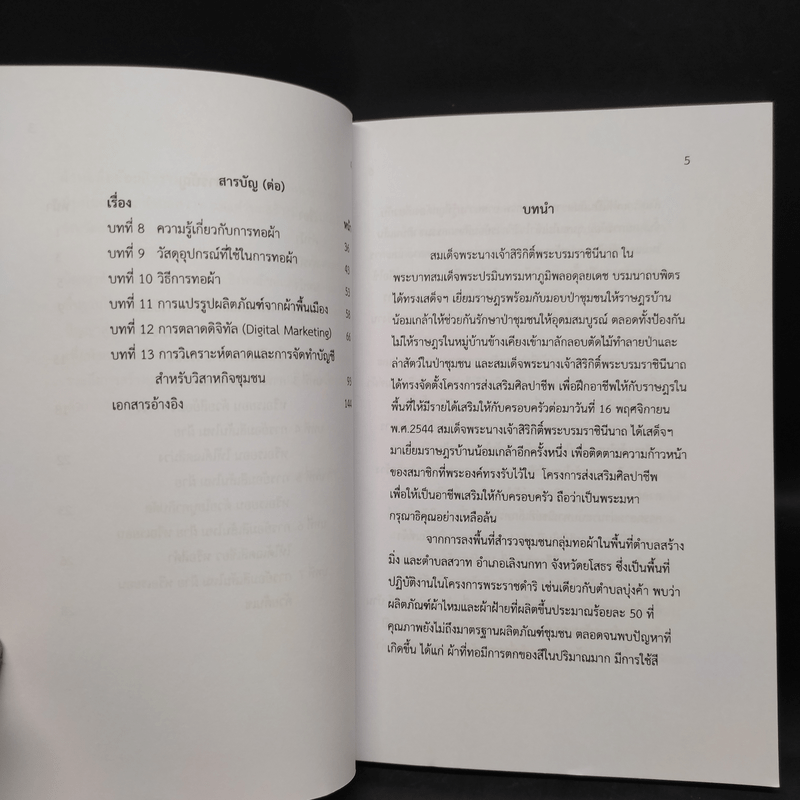 สารบัญ (ต่อ)
เรื่อง
หน้า
บทที่ 8 ความรู้เกี่ยวกับการทอผ้า 36
บทที่ 9 วัสดุอุปกรณ์ที่ใช้ในการทอผ้า 43
บทที่ 10 วิธีการทอผ้า 53
บทที่ 11 การแปรรูปผลิตภัณฑ์จากผ้าพื้นเมือง 58
บทที่ 12 การตลาดดิจิทัล (Digital Marketing) 66
บทที่ 13 การวิเคราะห์ตลาดและการจัดทำบัญชี
สำหรับวิสาหกิจชุมชน 93
เอกสารอ้างอิง 144
5
บทนำ
สมเด็จพระนางเจ้าสิริกิติ์พระบรมราชินีนาถ ใน
พระบาทสมเด็จพระปรมินทรมหาภูมิพลอดุลยเดช บรมนาถบพิตร
ได้ทรงเสด็จฯ เยี่ยมราษฎรพร้อมกับมอบป่าชุมชนให้ราษฎรบ้าน
น้อมเกล้าให้ช่วยกันรักษาป่าชุมชนให้อุดมสมบูรณ์ ตลอดทั้งป้องกัน
ไม่ให้ราษฎรในหมู่บ้านข้างเคียงเข้ามาลักลอบตัดไม้ทำลายป่าและ
ล่าสัตว์ในป่าชุมชน และสมเด็จพระนางเจ้าสิริกิติ์พระบรมราชินีนาถ
ได้ทรงจัดตั้งโครงการส่งเสริมศิลปาชีพ เพื่อฝึกอาชีพให้กับราษฎรใน
พื้นที่ให้มีรายได้เสริมให้กับครอบครัวต่อมาวันที่ 16 พฤศจิกายน
พ.ศ.2544 สมเด็จพระนางเจ้าสิริกิติ์พระบรมราชินีนาถ ได้เสด็จฯ
มาเยี่ยมราษฎรบ้านน้อมเกล้าอีกครั้งหนึ่ง เพื่อติดตามความก้าวหน้า
ของสมาชิกที่พระองค์ทรงรับไว้ใน โครงการส่งเสริมศิลปาชีพ
เพื่อให้เป็นอาชีพเสริมให้กับครอบครัว ถือว่าเป็นพระมหา
กรุณาธิคุณอย่างเหลือล้น
จากการลงพื้นที่สำรวจชุมชนกลุ่มทอผ้าในพื้นที่ตำบลสร้าง
มิ่ง และตำบลสวาท อำเภอเลิงนกทา จังหวัดยโสธร ซึ่งเป็นพื้นที่
ปฏิบัติงานในโครงการพระราชดำริ เช่นเดียวกับตำบลบุ่งค้า พบว่า
ผลิตภัณฑ์ผ้าไหมและผ้าฝ้ายที่ผลิตขึ้นประมาณร้อยละ 50 ที่
คุณภาพยังไม่ถึงมาตรฐานผลิตภัณฑ์ชุมชน ตลอดจนพบปัญหาที่
เกิดขึ้น ได้แก่ ผ้าที่ทอมีการตกของสีในปริมาณมาก มีการใช้สี